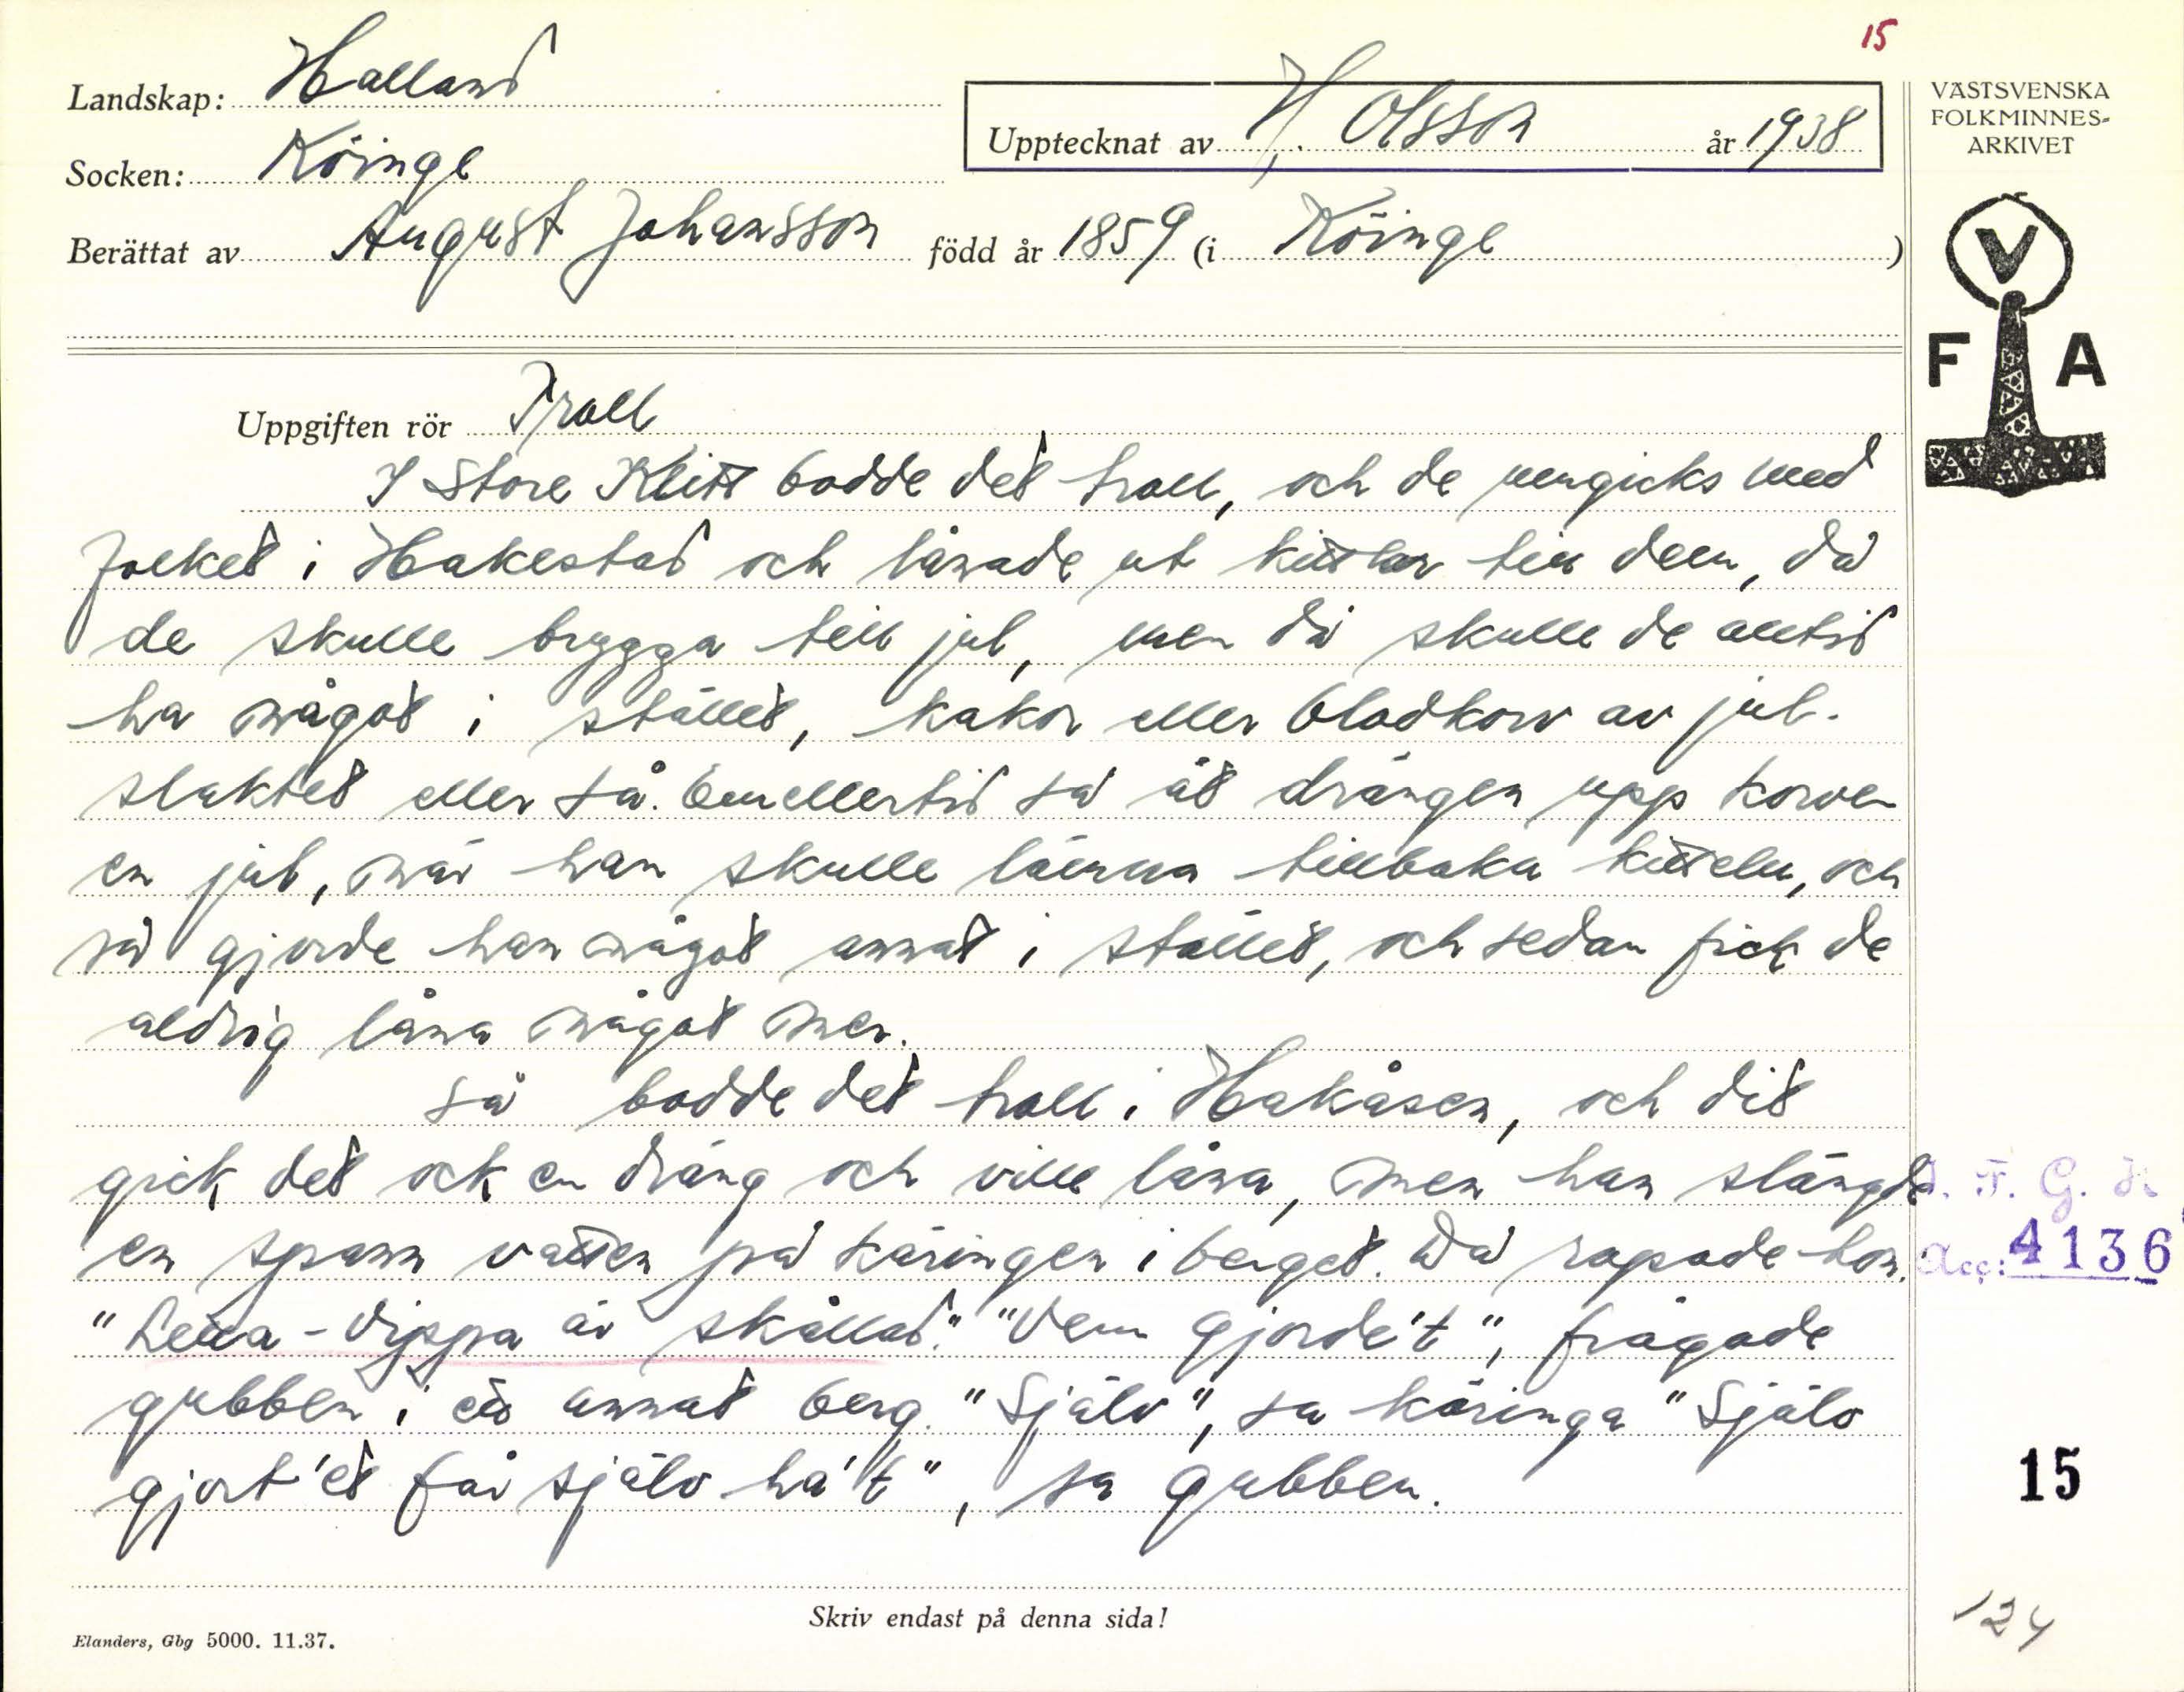 15
Landskap: Halland
Upptecknat av H. Olsson år 1938
Socken: Köinge
Berättat av August Johansson född år 1859 (i Köinge)
VÄSTSVENSKA
FOLKMINNES-
ARKIVET
V
F A
Uppgiften rör Troll
I Store Klitt bodde det troll, och de umgicks med
folket i Hakestad och lånade ut kittlar till dem, då
de skulle brygga till jul, men då skulle de alltid
ha något i stället, kakor eller blodkorv av jul-
slaktet eller så. Emellertid så åt drängen upp korven
en jul, när han skulle lämna tillbaka kitteln, och
så gjorde han något annat i stället, och sedan fick de
aldrig låna något mer.
Så bodde det troll i Hakåsen, och dit
gick det ock en dräng och ville låna, men han slängde
en spann vatten på käringen i berget. Då ropade hon.
"-Vippa är skållad." "Vem gjorde't", frågade
gubben i ett annat berg. "Själv", sa käringa "Själv
gjort'et får själv ha't", sa gubben.
F. G.
Acc: 4136
15
Skriv endast på denna sida!
Elanders, Gbg 5000. 11.37.
124